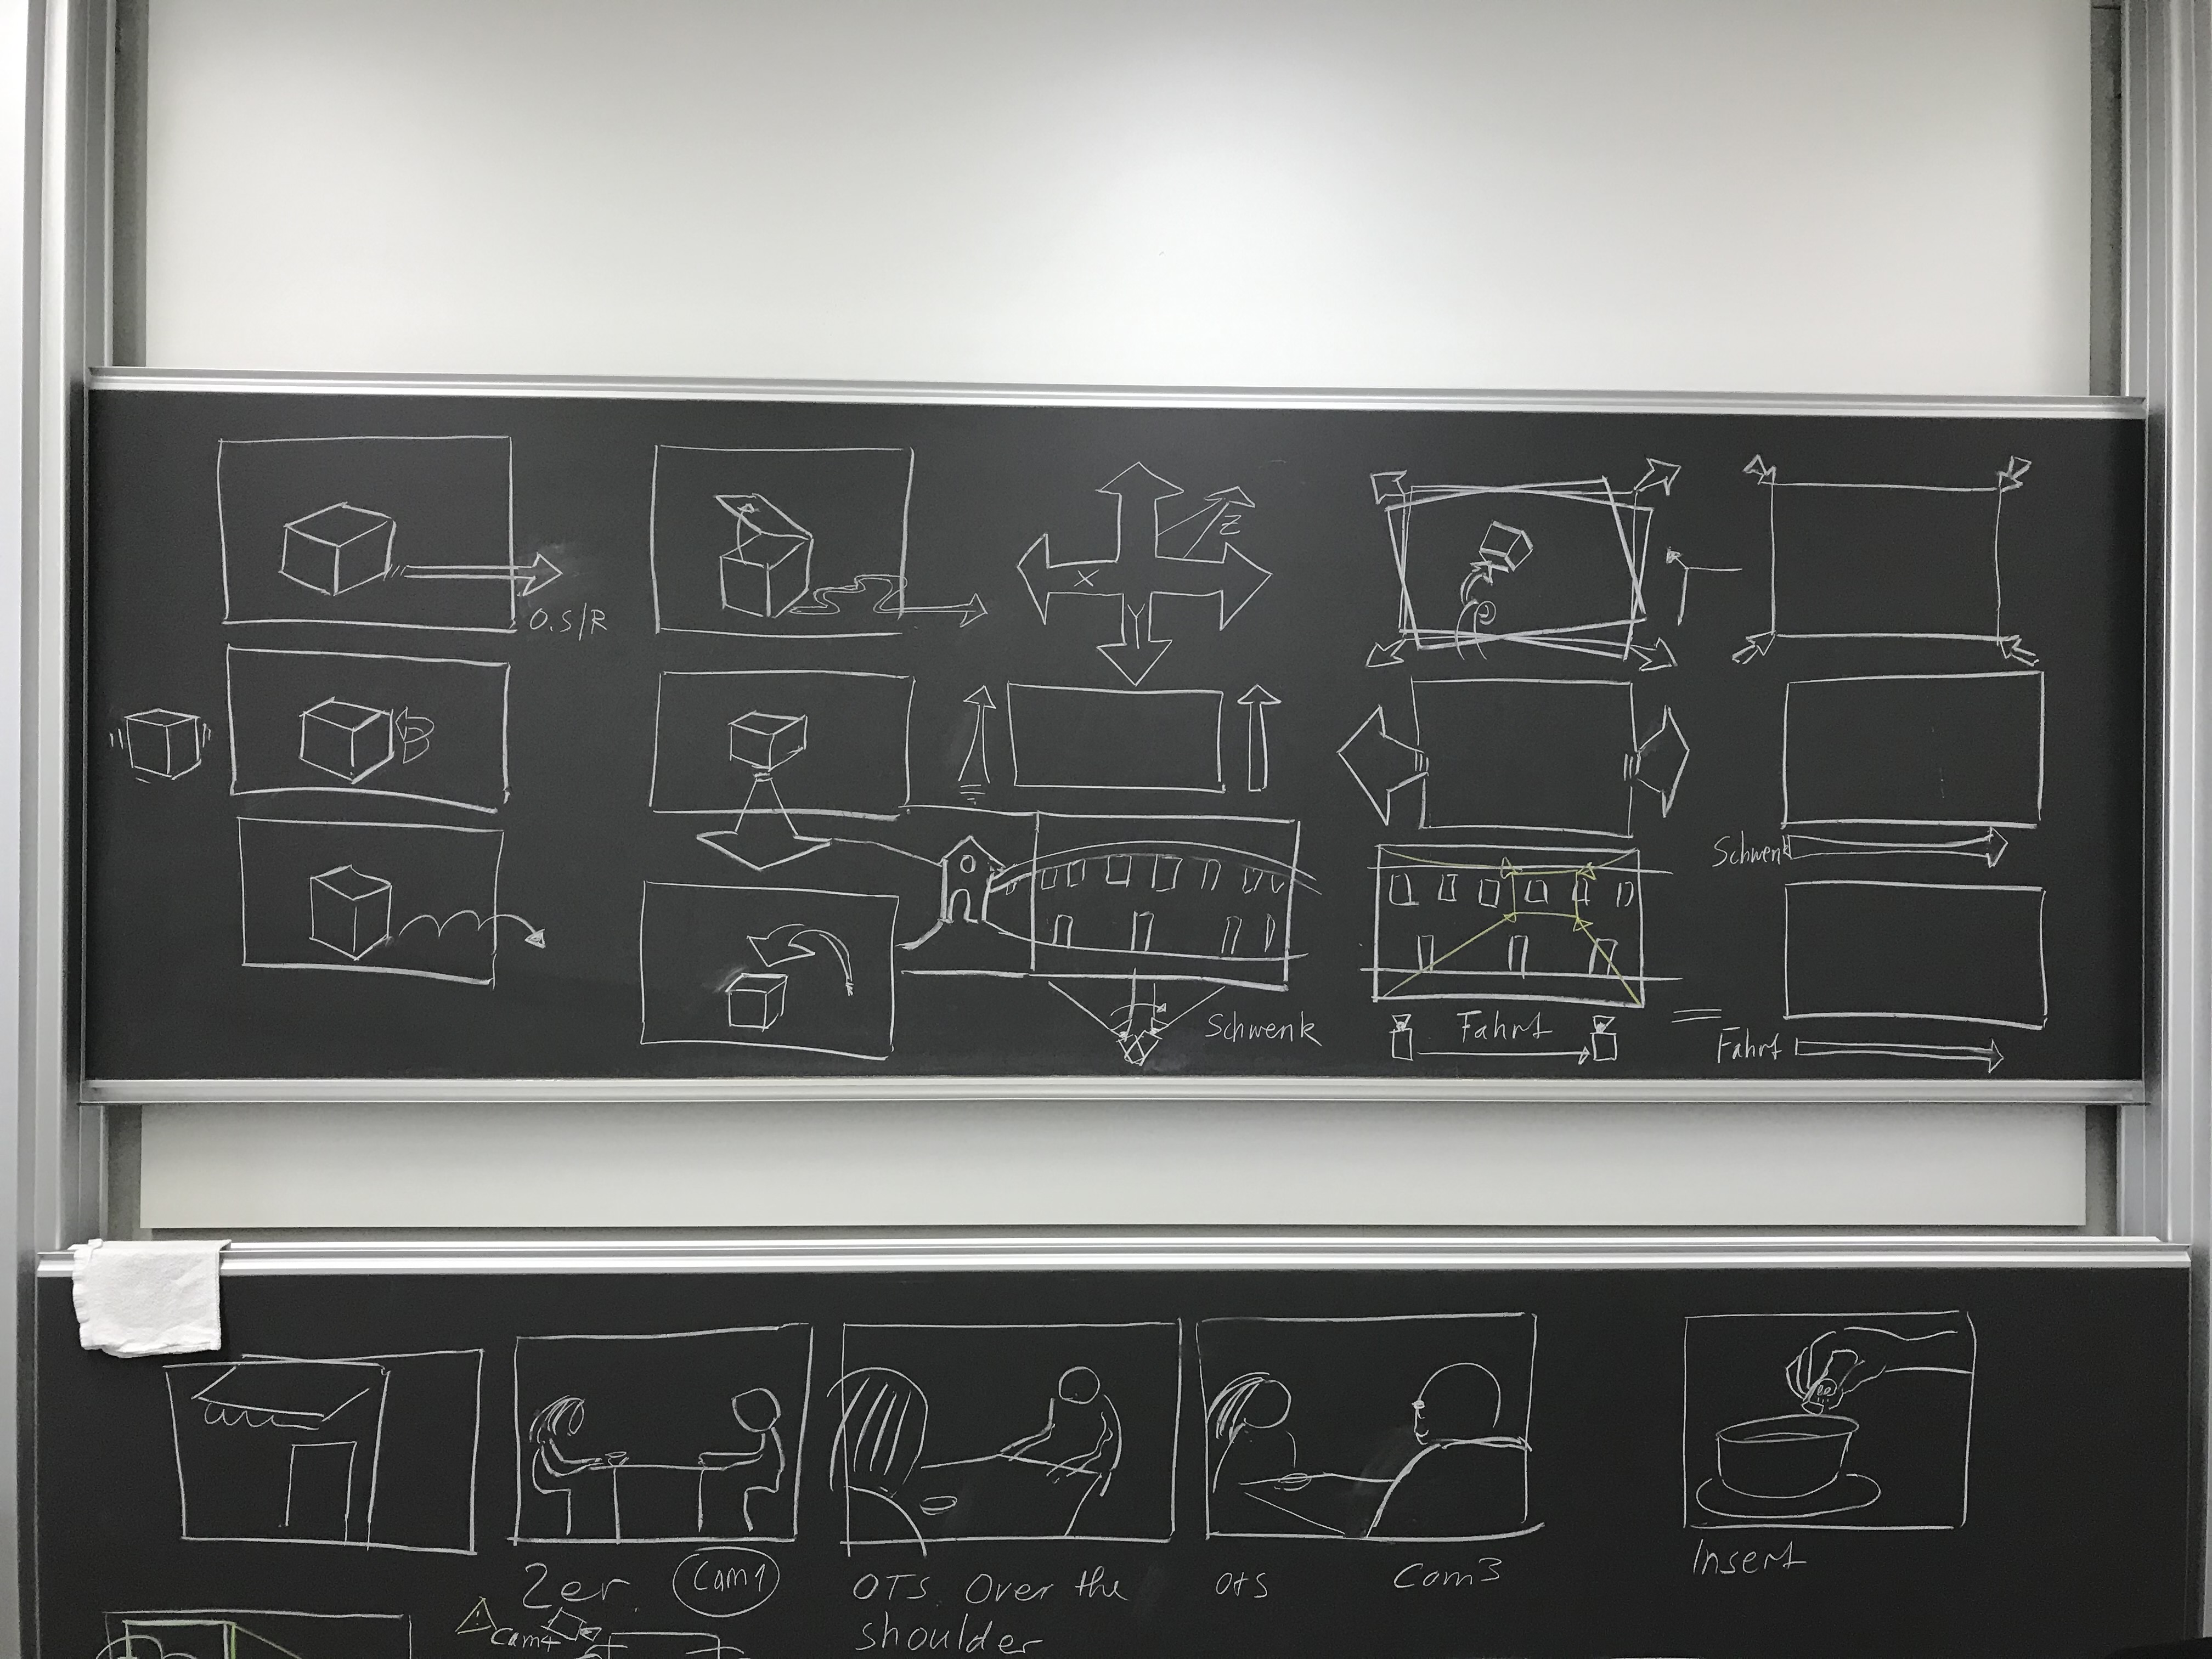 O.S/R
X
Y
Z
Schwenk
Schwenk
Fahrt
Fahrt
2er
Cam1
OTS. Over the
shoulder
OtS
Cam3
Insert
Cam4